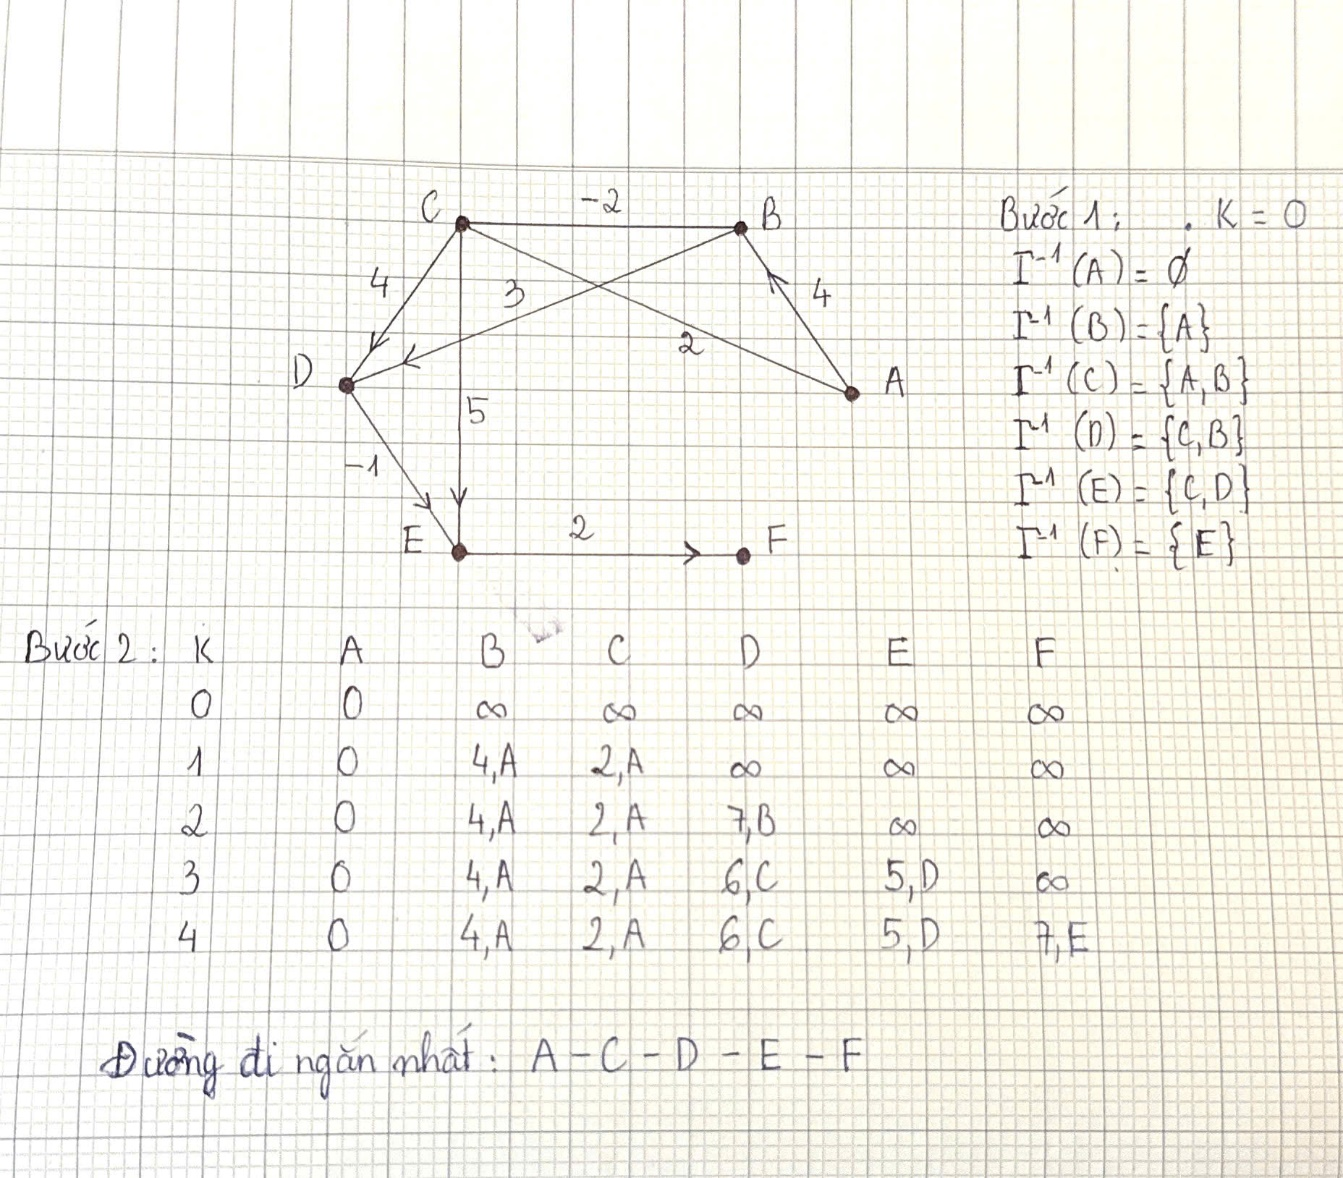 C -2 B
4 3 4
2
D A
5
-1
E 2 F
Bước 1: . K = 0
Γ⁻¹ (A) = ∅
Γ⁻¹ (B) = {A}
Γ⁻¹ (C) = {A,B}
Γ⁻¹ (D) = {C,B}
Γ⁻¹ (E) = {C,D}
Γ⁻¹ (F) = {E}
Bước 2: K A B C D E F
0 0 ∞ ∞ ∞ ∞ ∞
1 0 4,A 2,A ∞ ∞ ∞
2 0 4,A 2,A 7,B ∞ ∞
3 0 4,A 2,A 6,C 5,D ∞
4 0 4,A 2,A 6,C 5,D 7,E
Đường đi ngắn nhất: A - C - D - E - F